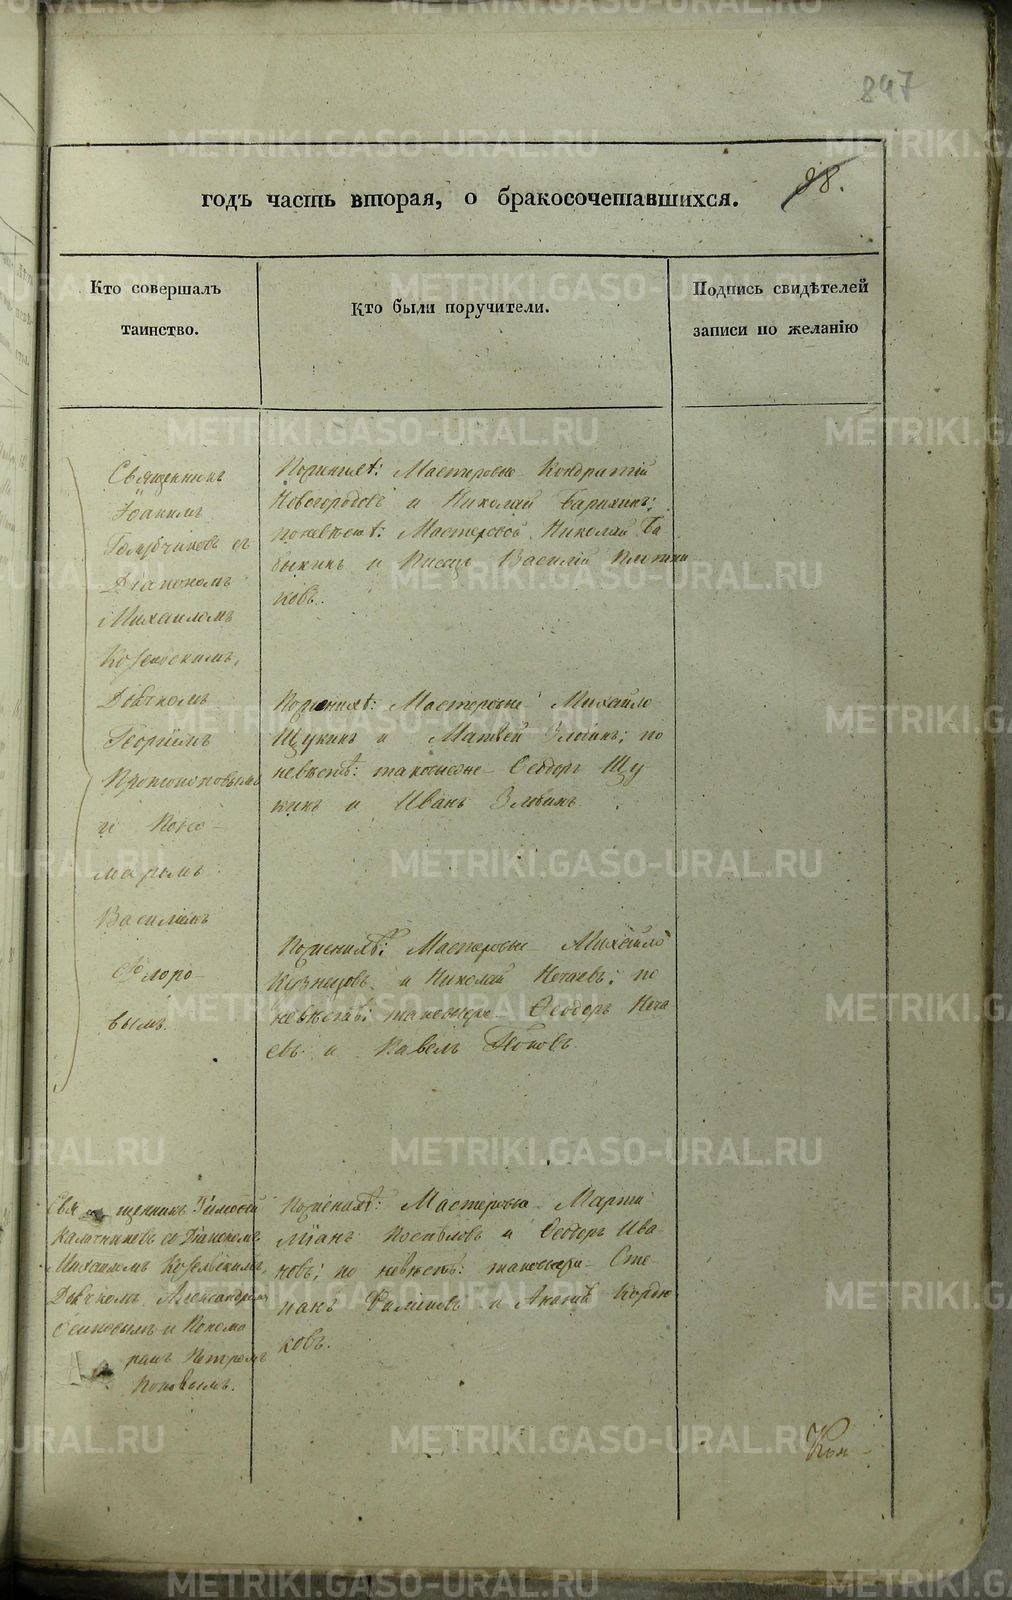 847
98.
годъ часть вторая, о бракосочетавшихся.
Кто совершалъ
таинство.
Кто были поручители.
Подпись свидѣтелей
записи по желанію
Священникъ
Іоакимъ
съ
Діакономъ
Михаиломъ
Дьячкомъ
Георгіемъ
и Поно-
маремъ
Василіемъ
Флоро-
вымъ.
По женихѣ: Мастеровые Кондратій
Новогородовъ и Николай
по невѣстѣ: Мастеровой Николай Ба
и Писецъ Василій Плотни
ковъ.
По женихѣ: Мастеровые Михайло
Щукинъ и Матвей Злобинъ; по
невѣстѣ: таковые-же Ѳеодоръ Щу
кинъ и Иванъ Злобинъ.
По женихѣ: Мастеровые Михайло
Кузнецовъ и Николай Нечаевъ; по
невѣстѣ: таковые-же Ѳеодоръ Неча
евъ и Павелъ Поповъ.
Священникъ Тимоѳей
Калачниковъ съ Діакономъ
Михаиломъ
Дьячкомъ Александромъ
Осиповымъ и Понома
ремъ Петромъ
Поповымъ.
По женихѣ: Мастеровые Марти
міанъ Поспѣловъ и Ѳеодоръ Ива
новъ; по невѣстѣ: таковые-же Сте
панъ Филиповъ и
ковъ.
METRIKI.GASO-URAL.RU